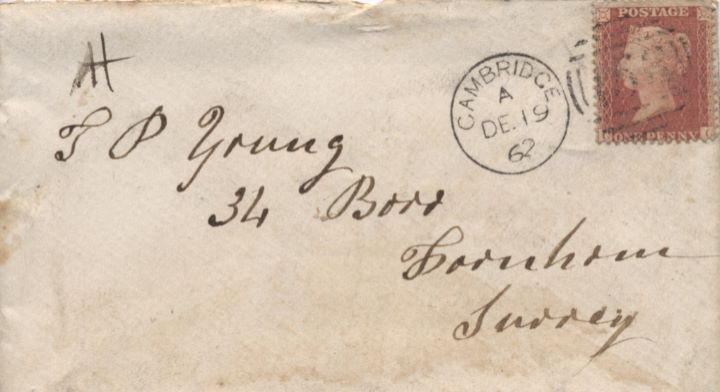 H
POSTAGE
ONE PENNY
CAMBRIDGE
A
DE.19
62
T P Young
34 Boro
Farnham
Surrey